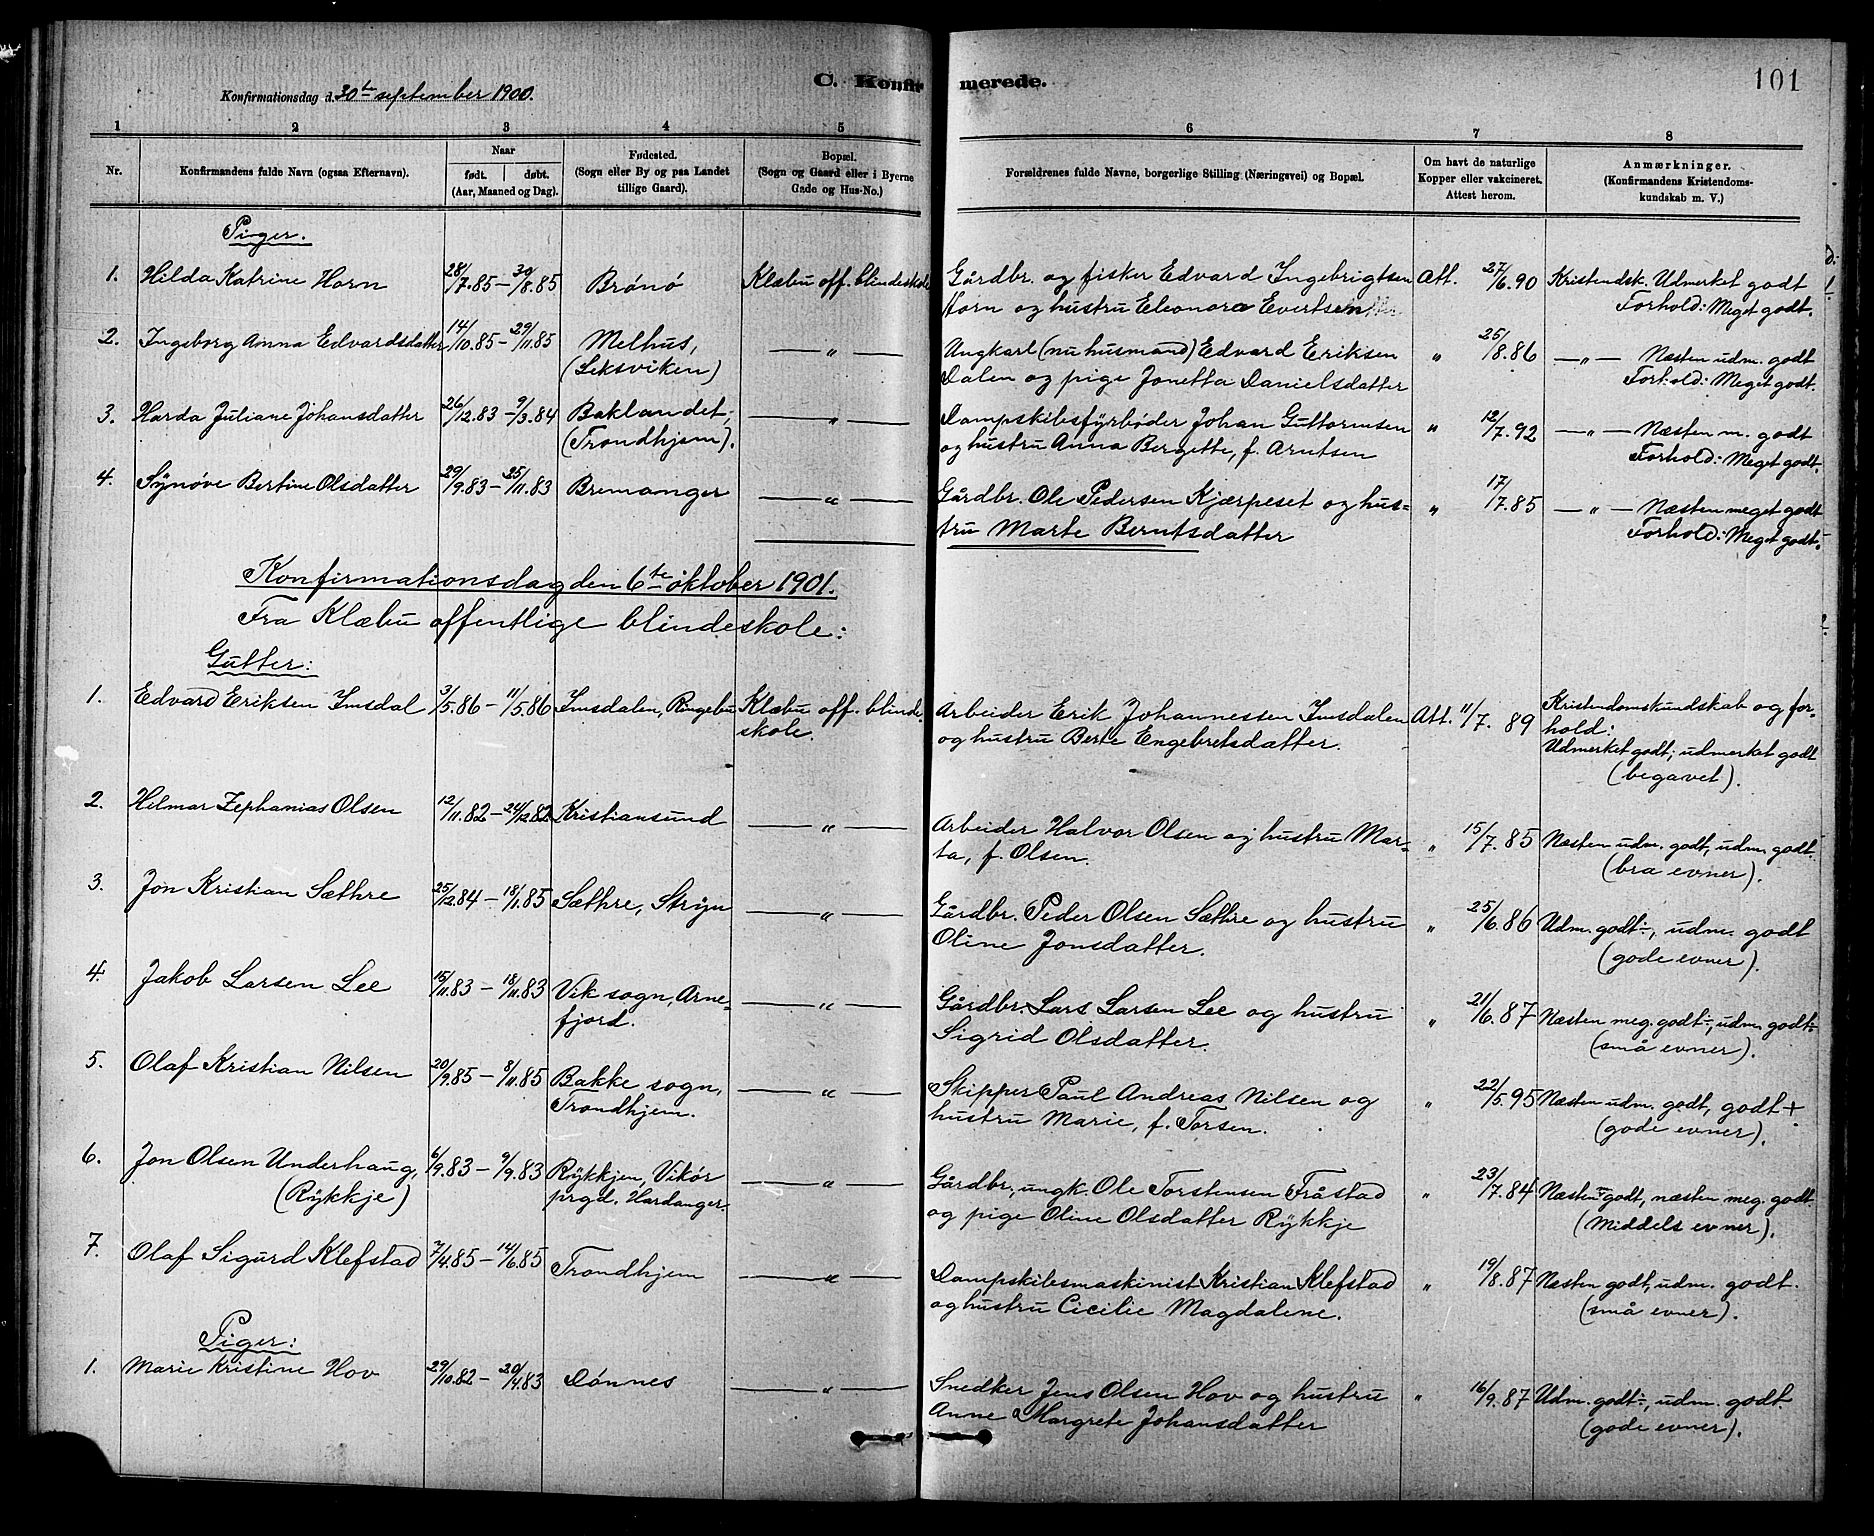 C. Konfirmerede.
101
Konfirmationsdag d. 30te september 1900.
1 2 3 4 5 6 7 8
Nr.
Konfirmandens fulde Navn (ogsaa Efternavn).
Naar
født. døbt.
(Aar, Maaned og Dag).
Fødested.
(Sogn eller By og paa Landet
tillige Gaard).
Bopæl.
(Sogn og Gaard eller i Byerne
Gade og Hus-No.)
Forældrenes fulde Navne, borgerlige Stilling (Næringsvei) og Bopæl.
Om havt de naturlige
Kopper eller vakcineret.
Attest herom.
Anmærkninger.
(Konfirmandens Kristendoms-
kundskab m. V.)
Piger.
1. Hilda Katrine Horn 28/7.85 – 30/8.85 Brønø Klæbu off. blindeskole Gårdbr. og fisker Edvard Ingebrigtsen Att. 27/6.90 Kristendsk. Udmerket godt
Horn og hustru Eleonora Evertsen Forhold: Meget godt.
2. Ingeborg Anna Edvardsdatter 14/10.85 – 29/11.85 Melhus, — „ — Ungkarl (nu husmand) Edvard Eriksen „ 25/8.86 — „ — Næsten udm. godt
(Leksviken) Dalen og pige Jonetta Danielsdatter Forhold: Meget godt.
3. Harda Juliane Johansdatter 26/12.83 – 9/3.84 Baklandet, — „ — Dampskibsfyrbøder Johan Guttormsen „ 12/7.92 — „ — Næsten m. godt
(Trondhjem). og hustru Anna Bergette, f. Arntsen Forhold: Meget godt.
4. Synøve Bertine Olsdatter 29/9.83 – 25/11.83 Bremanger — „ — Gårdbr. Ole Pedersen Kjærpeset og hus- „ 17/7.85 — „ — Næsten meget godt
tru Marte Berntsdatter Forhold: Meget godt.
Konfirmationsdag den 6te oktober 1901.
Fra Klæbu offentlige blindeskole:
Gutter:
1. Edvard Eriksen Imsdal 3/5.86 – 11/5.86 Imsdalen, Ringebu Klæbu off. blinde- Arbeider Erik Johannessen Imsdalen Att. 11/7.89 Kristendomskundskab og for-
skole. og hustru Berte Engebretsdatter. hold:
Udmerket godt; udmerket godt
(begavet).
2. Hilmar Zephanias Olsen 12/11.82 – 24/12.82 Kristiansund — „ — Arbeider Halvor Olsen og hustru Mar- „ 15/7.85 Næsten udm. godt, udm. godt.
ta, f. Olsen. (bra evner).
3. Jon Kristian Sæthre 25/12.84 – 18/1.85 Sæthre, Stryn — „ — Gårdbr. Peder Olsen Sæthre og hustru „ 25/6.86 Udm. godt÷, udm. godt
Oline Jonsdatter. (gode evner).
4. Jakob Larsen Lee 15/11.83 – 18/11.83 Vik sogn, Arne- — „ — Gårdbr. Lars Larsen Lee og hustru „ 21/6.87 Næsten meg. godt÷, udm. godt÷
fjord. Sigrid Olsdatter. (små evner).
5. Olaf Kristian Nilsen 20/9.85 – 8/11.85 Bakke sogn, — „ — Skipper Paul Andreas Nilsen og „ 22/5.95 Næsten udm. godt, godt +
Trondhjem. hustru Marie, f. Torsen. (gode evner).
6. Jon Olsen Underhaug, 6/9.83 – 9/9.83 Rykkjen, Vikør — „ — Gårdbr., ungk. Ole Torstensen Fråstad „ 23/7.84 Næsten godt, næsten meg. godt.
(Rykkje) prgd. Hardanger. og pige Oline Olsdatter Rykkje (middels evner).
7. Olaf Sigurd Klefstad 7/4.85 – 14/6.85 Trondhjem — „ — Dampskibsmaskinist Kristian Klefstad „ 19/8.87 Næsten godt, udm. godt.
og hustru Cicilie Magdalene. (små evner).
Piger:
1. Marie Kristine Hov 29/10.82 – 20/4.83 Dønnes — „ — Snedker Jens Olsen Hov og hustru „ 16/9.87 Udm. godt÷, udm. godt.
Anne Margrete Johansdatter (gode evner).